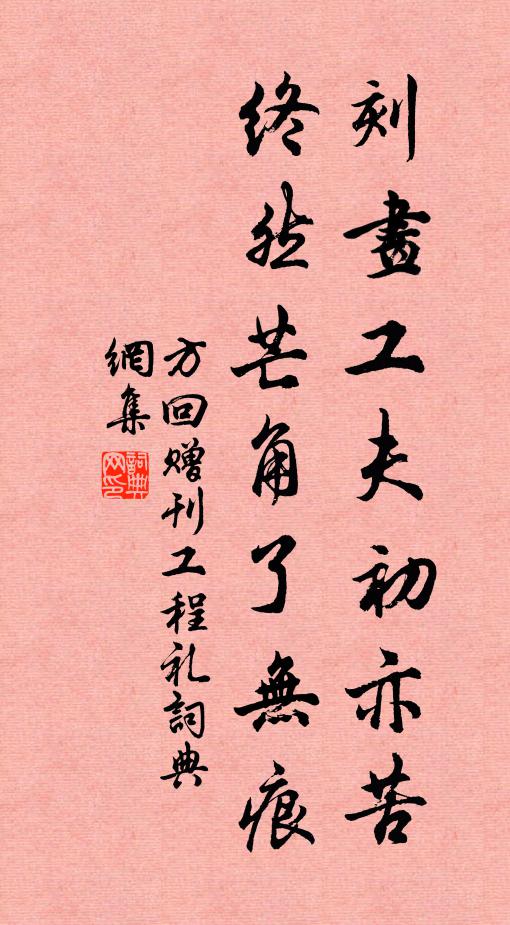 刻畫工夫初亦苦
終然芒角了無痕
方回赠刊工程礼詞典
網集
詞典
网印